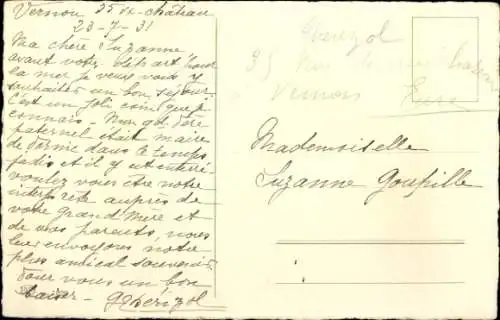 Vernon 35 rx-château
23-7-31
Ma chère Suzanne,
avant votre départ pour
la mer je veux vous y
souhaiter un bon séjour.
C'est un joli coin que je
connais - Mon gd. père
paternel était maire
de Pornic dans le temps
jadis et il y est enterré -
voulez vous être notre
interprète auprès de
votre grand'mère et
de vos parents, nous
leur envoyons notre
plus amical souvenir.
Pour vous un bon
baiser - GGhérizol
Ghérizol
35 Rue
Vernon
Eure
Mademoiselle
Suzanne Goupille